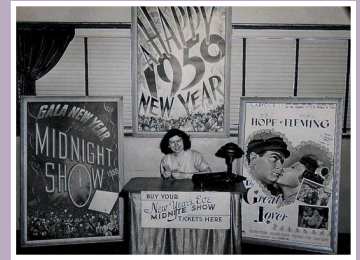 A HAPPY
1950
NEW YEAR
GALA NEW YEAR
MIDNIGHT
SHOW
BUY YOUR
New Year's Eve
MIDNITE SHOW
TICKETS HERE
HOPE FLEMING
The
Great
Lover